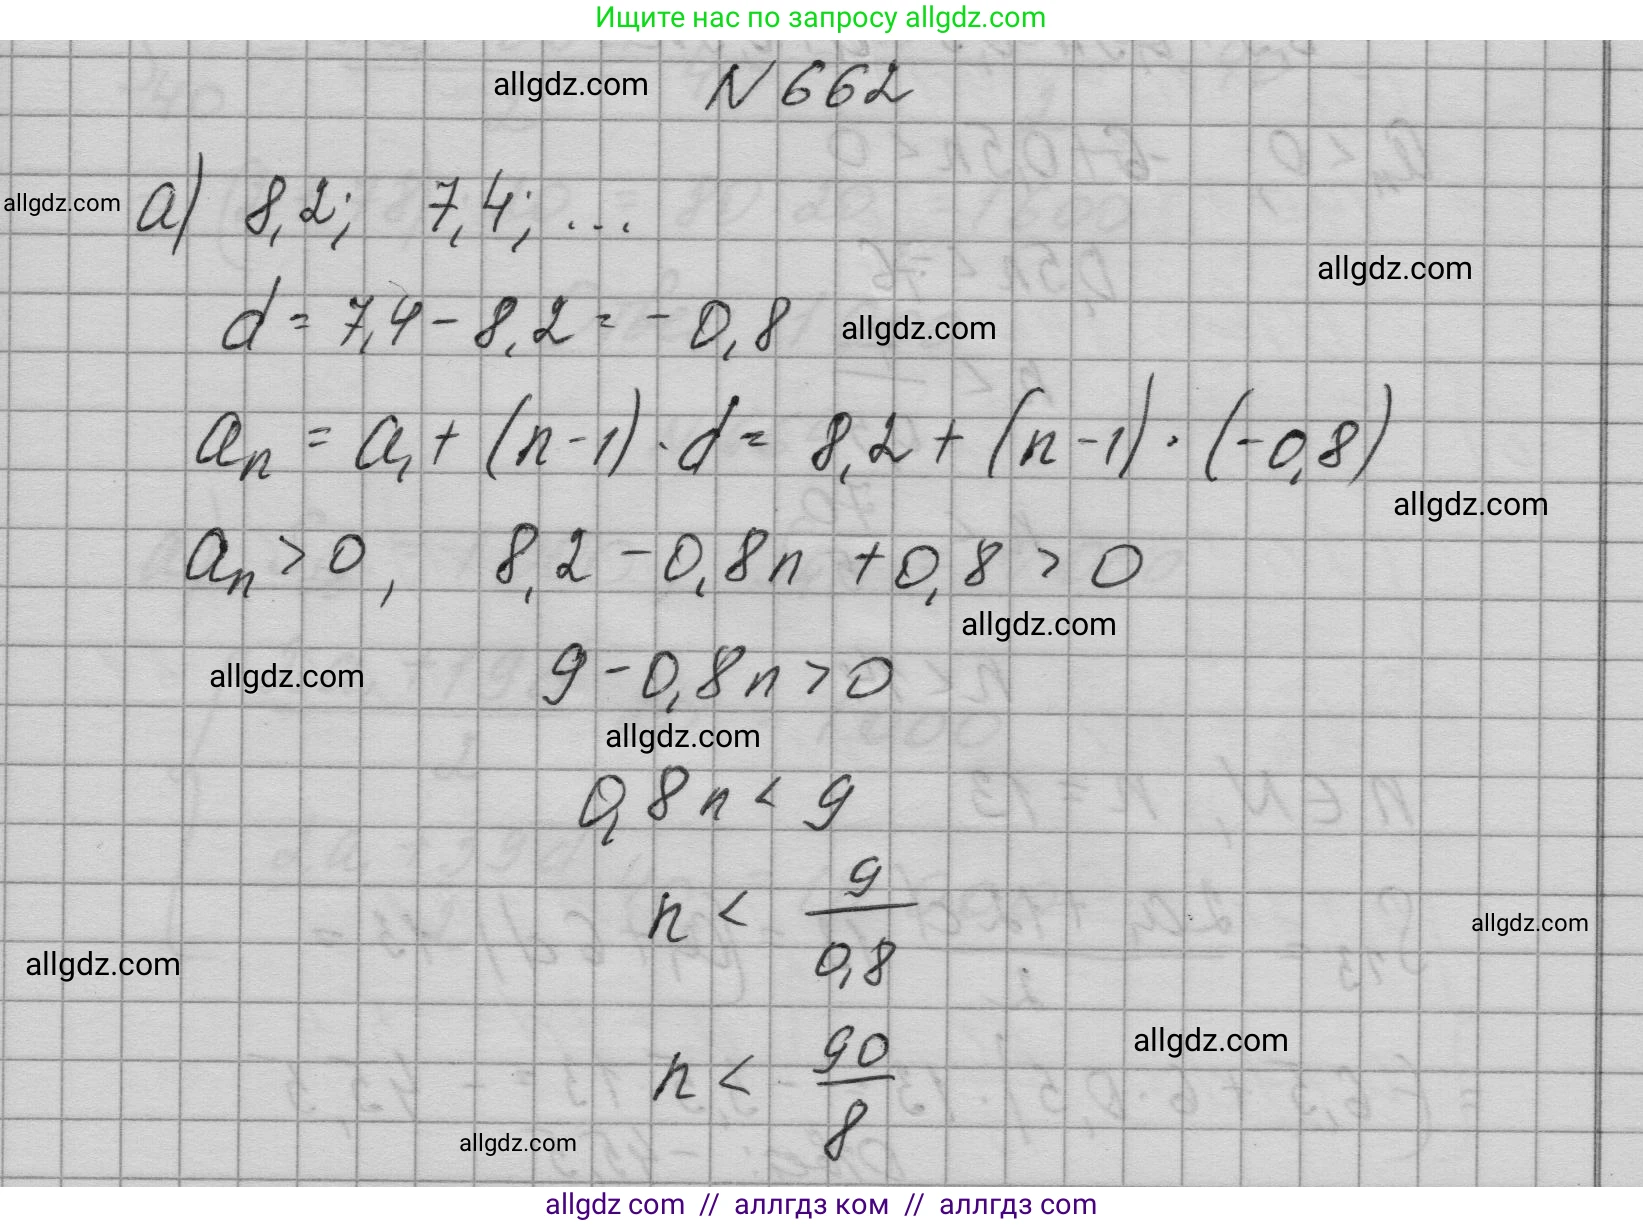 Ищите нас по запросу allgdz.com
allgdz.com N 662
allgdz.com а) 8,2; 7,4; ...
allgdz.com
d = 7,4 - 8,2 = - 0,8 allgdz.com
aₙ = a₁ + (n-1) · d = 8,2 + (n-1) · (-0,8)
allgdz.com
aₙ > 0, 8,2 - 0,8n + 0,8 > 0
allgdz.com
allgdz.com 9 - 0,8n > 0
allgdz.com
0,8n < 9
n < 9/0,8
allgdz.com
allgdz.com
n < 90/8
allgdz.com
allgdz.com
allgdz com // аллгдз ком // аллгдз com